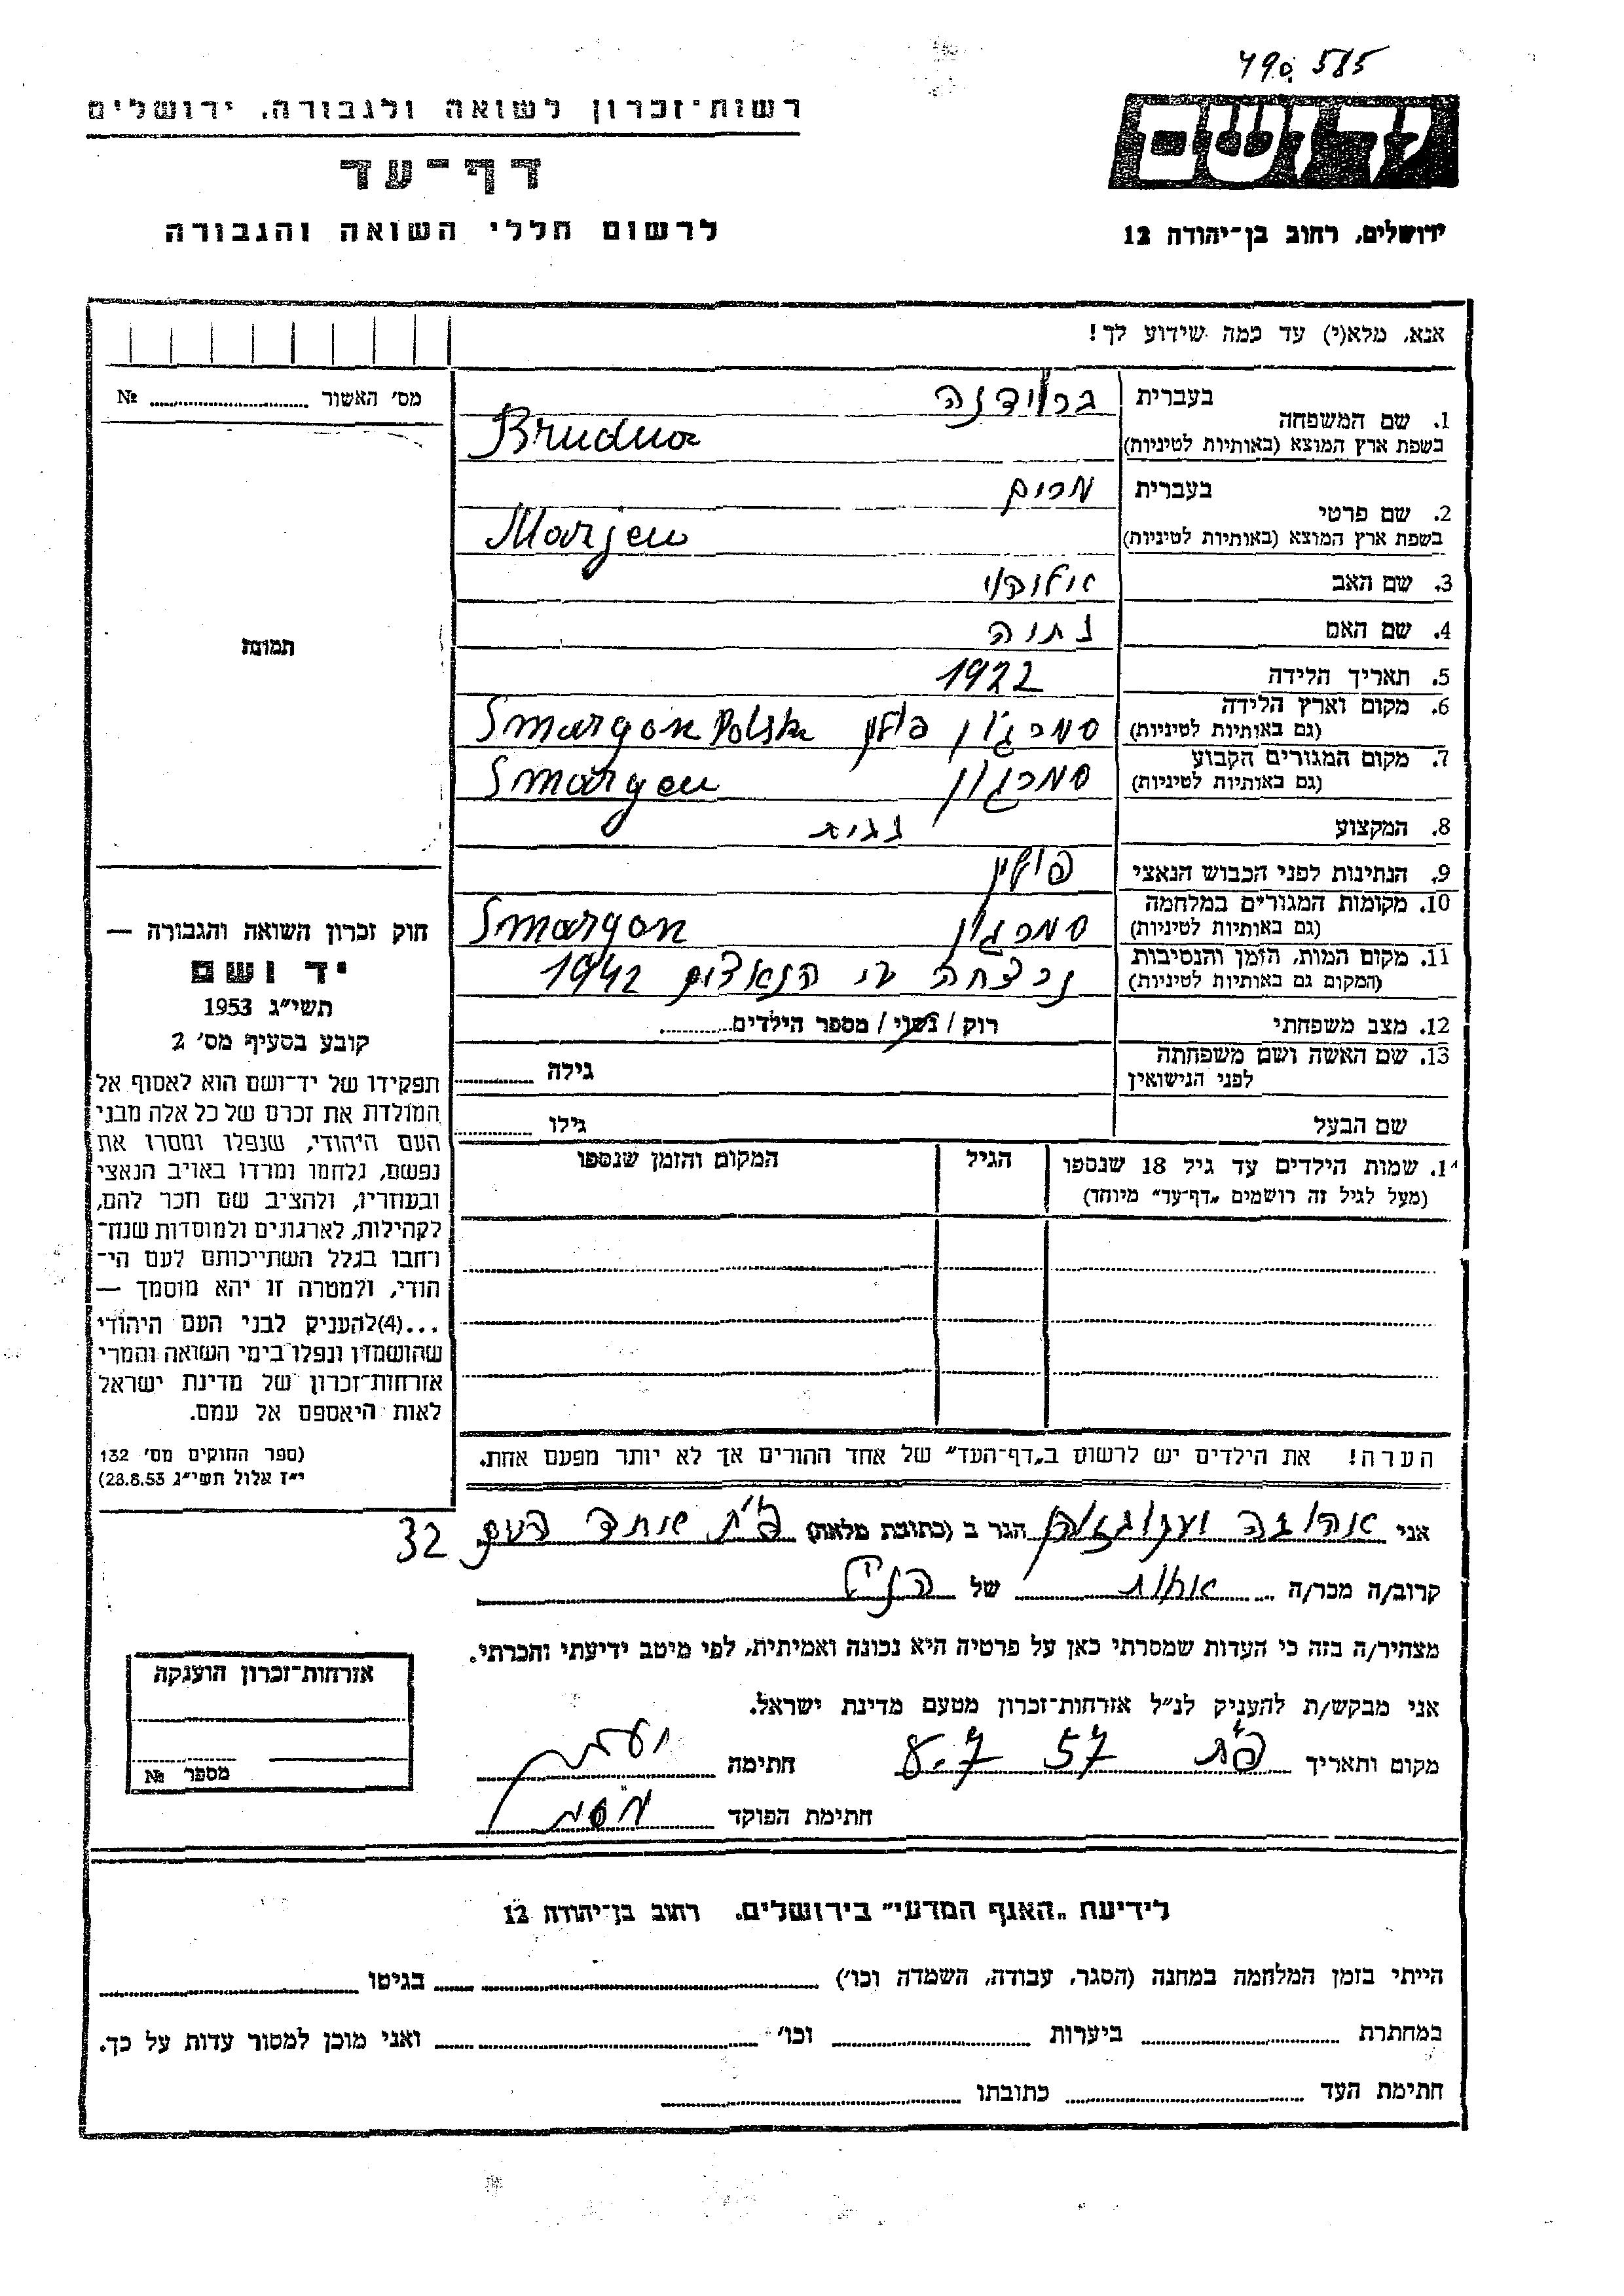 490,585
רשות־זכרון לשואה ולגבורה, ירושלים
דף־עד
לרשום חללי השואה והגבורה
יד ושם
ירושלים, רחוב בן־יהודה 12
אנא, מלא(י) עד כמה שידוע לך!
מס' האשור № 
1. שם המשפחה
בעברית ברוידנה
בשפת ארץ המוצא (באותיות לטיניות) Brudna
2. שם פרטי
בעברית מרים
בשפת ארץ המוצא (באותיות לטיניות) Marjen
3. שם האב
4. שם האם
5. תאריך הלידה 1922
6. מקום וארץ הלידה
(גם באותיות לטיניות) סמרגון פולין Smargon Polska
7. מקום המגורים הקבוע
(גם באותיות לטיניות) סמרגון Smargon
8. המקצוע גננת
9. הנתינות לפני הכבוש הנאצי פולין
10. מקומות המגורים במלחמה
(גם באותיות לטיניות) סמרגון Smargon
11. מקום המות, הזמן והנסיבות
(המקום גם באותיות לטיניות) נרצחה ע"י הנאצים 1942
12. מצב משפחתי רוק / נשוי / מספר הילדים
13. שם האשה ושם משפחתה
לפני הנישואין גילה
שם הבעל גילו
שמות הילדים עד גיל 18 שנספו
(מעל לגיל זה רושמים „דף־עד" מיוחד)
הגיל
המקום והזמן שנספו
הערה! את הילדים יש לרשום ב„דף־העד" של אחד ההורים אך לא יותר מפעם אחת.
תמונה
חוק זכרון השואה והגבורה —
יד ושם
תשי"ג 1953
קובע בסעיף מס' 2
תפקידו של יד־ושם הוא לאסוף אל
המולדת את זכרם של כל אלה מבני
העם היהודי, שנפלו ומסרו את
נפשם, נלחמו ומרדו באויב הנאצי
ובעוזריו, ולהציב שם וזכר להם,
לקהילות, לארגונים ולמוסדות שנח־
רחבו בגלל השתייכותם לעם הי־
הודי, ולמטרה זו יהא מוסמך —
...(4)להעניק לבני העם היהודי
שהושמדו ונפלו בימי השואה והמרי
אזרחות־זכרון של מדינת ישראל
לאות היאספם אל עמם.
(ספר החוקים מס' 132
י"ז אלול תשי"ג 28.8.53)
אני אהובה הגר ב (כתובת מלאה) פ"ת אחד העם 32
קרוב/ה מכר/ה אחות של הנ"ל
מצהיר/ה בזה כי העדות שמסרתי כאן על פרטיה היא נכונה ואמיתית, לפי מיטב ידיעתי והכרתי.
אני מבקש/ת להעניק לנ"ל אזרחות־זכרון מטעם מדינת ישראל.
מקום ותאריך פ"ת 8.7 57 חתימה
חתימת הפוקד
אזרחות־זכרון הוענקה
מספר №
לידיעת „האגף המדעי" בירושלים, רחוב בן־יהודה 12
הייתי בזמן המלחמה במחנה (הסגר, עבודה, השמדה וכו') בגיטו
במחתרת ביערות וכו' ואני מוכן למסור עדות על כך.
חתימת העד כתובתו